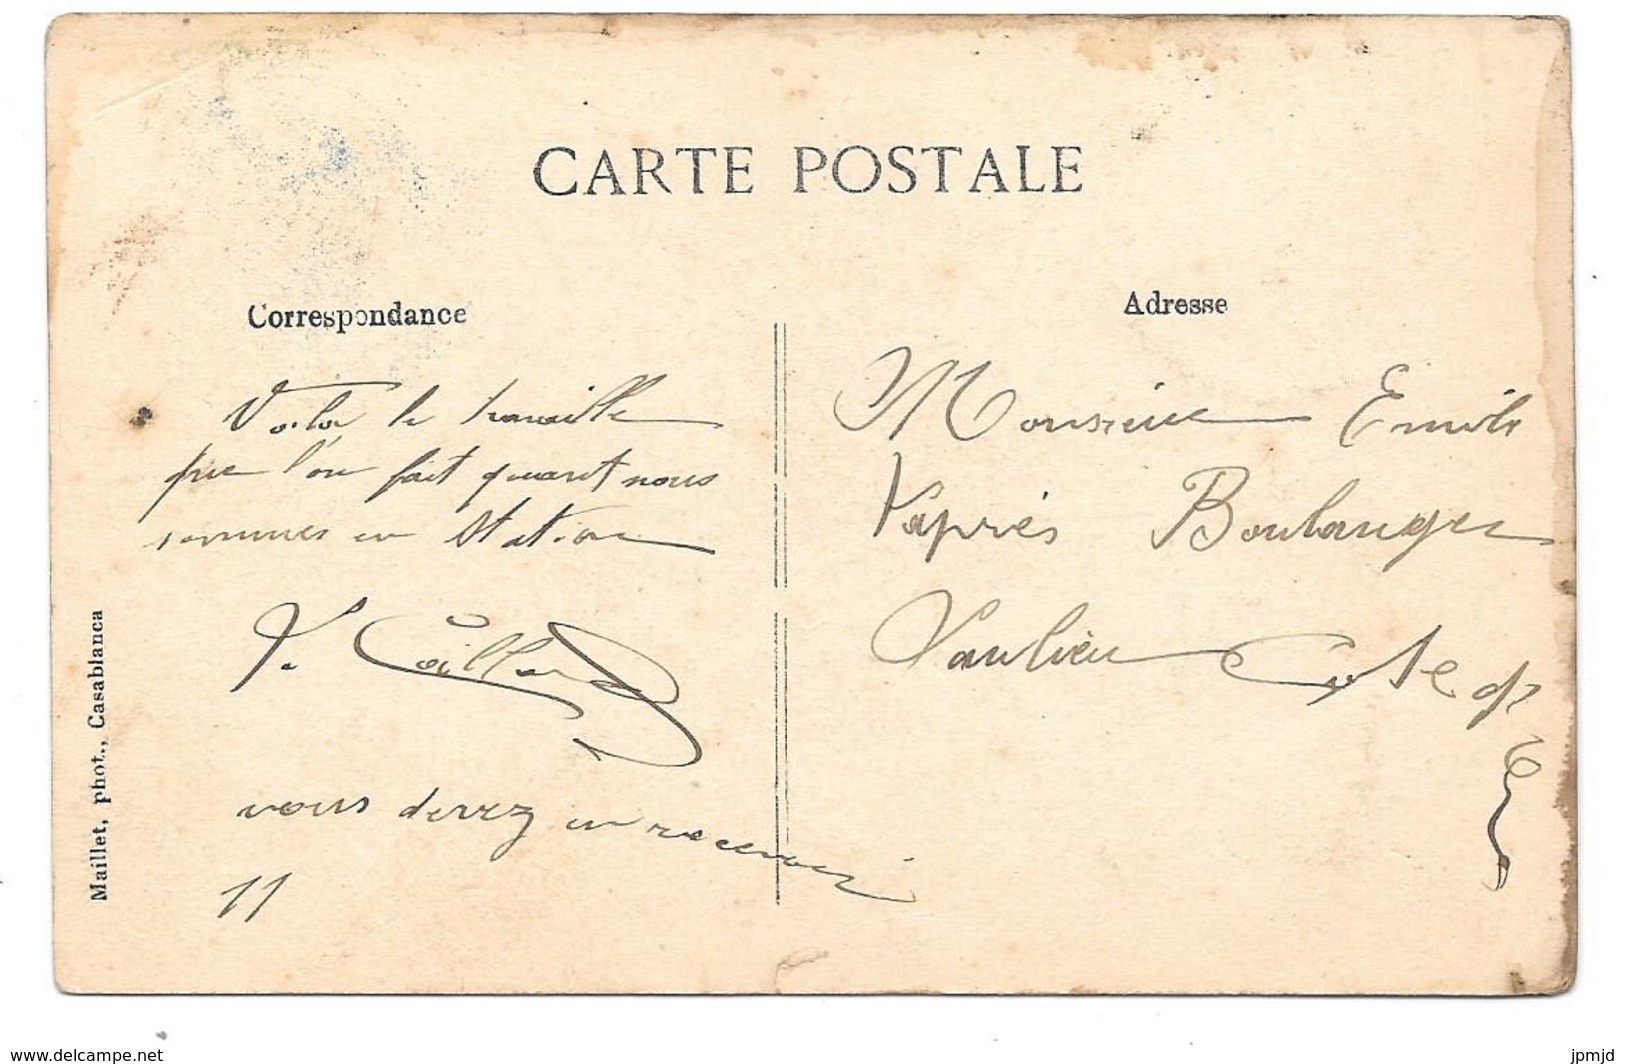 CARTE POSTALE
Correspondance
Voila le travaille
que l'on fait quant nous
sommes en Station
Caillard
vous devez en recevoir
11
Adresse
Monsieur Emile
Boulanger
Saulieu Cote d'
Or
Maillet, phot., Casablanca
www.delcampe.net
jpmjd